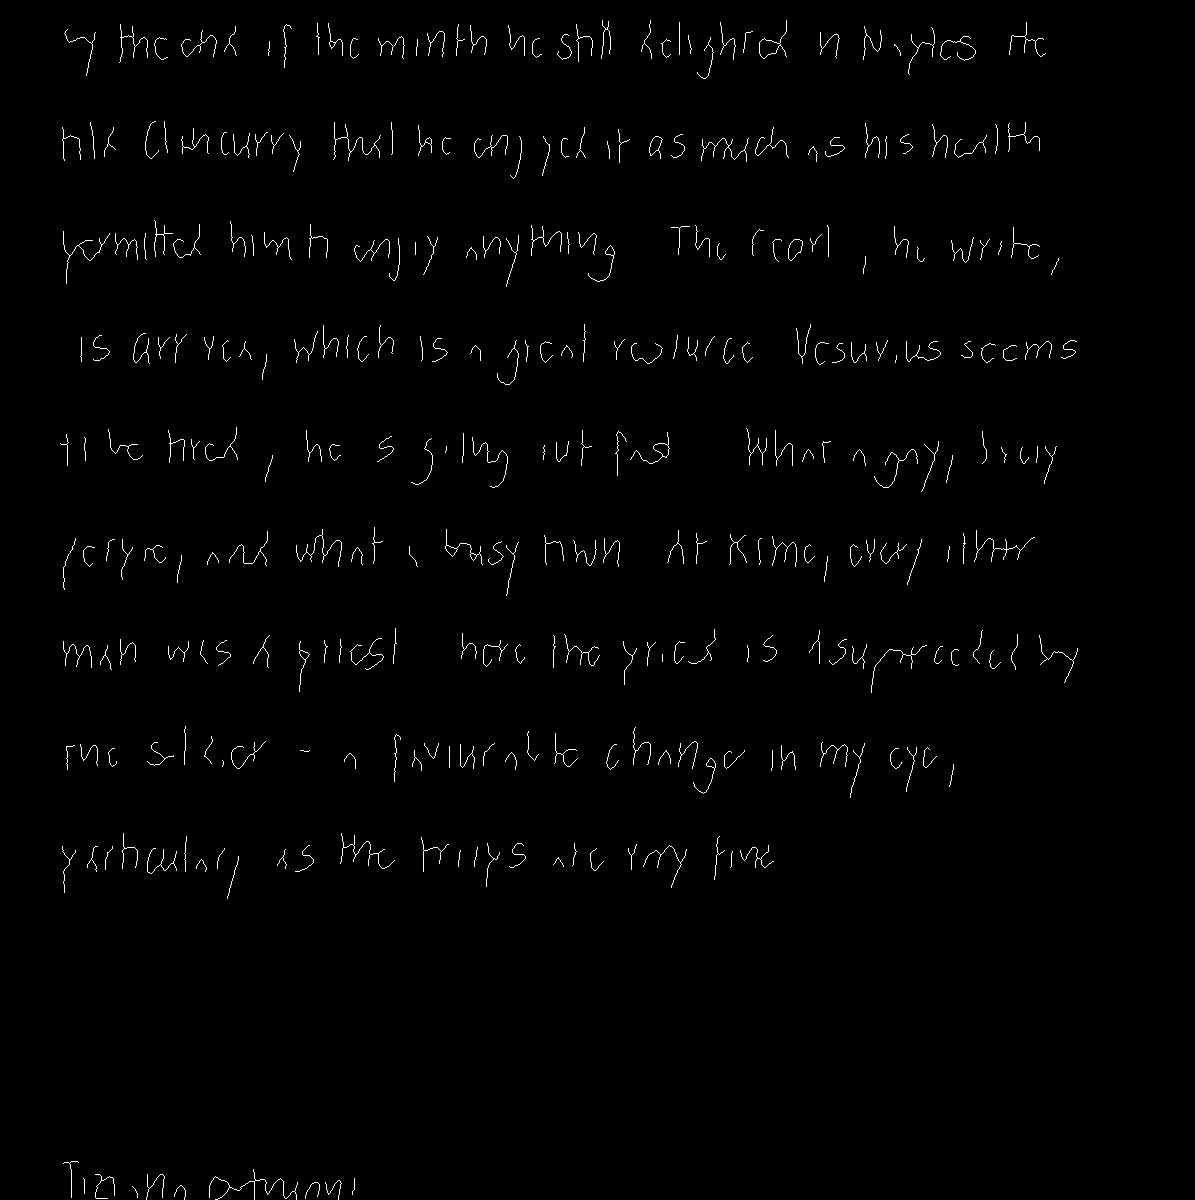 by the end of the month he still delighted in Naples. He
told Cloncurry that he enjoyed it as much as his health
permitted him to enjoy anything. The Court, he wrote,
is arrived, which is a great resource. Vesuvius seems
to be tired, he is going out fast. What a gay, lively
people, and what a busy town. At Rome, every other
man was a priest here the priest is superseded by
the soldier - a favourable change in my eye,
particularly as the troops are very fine